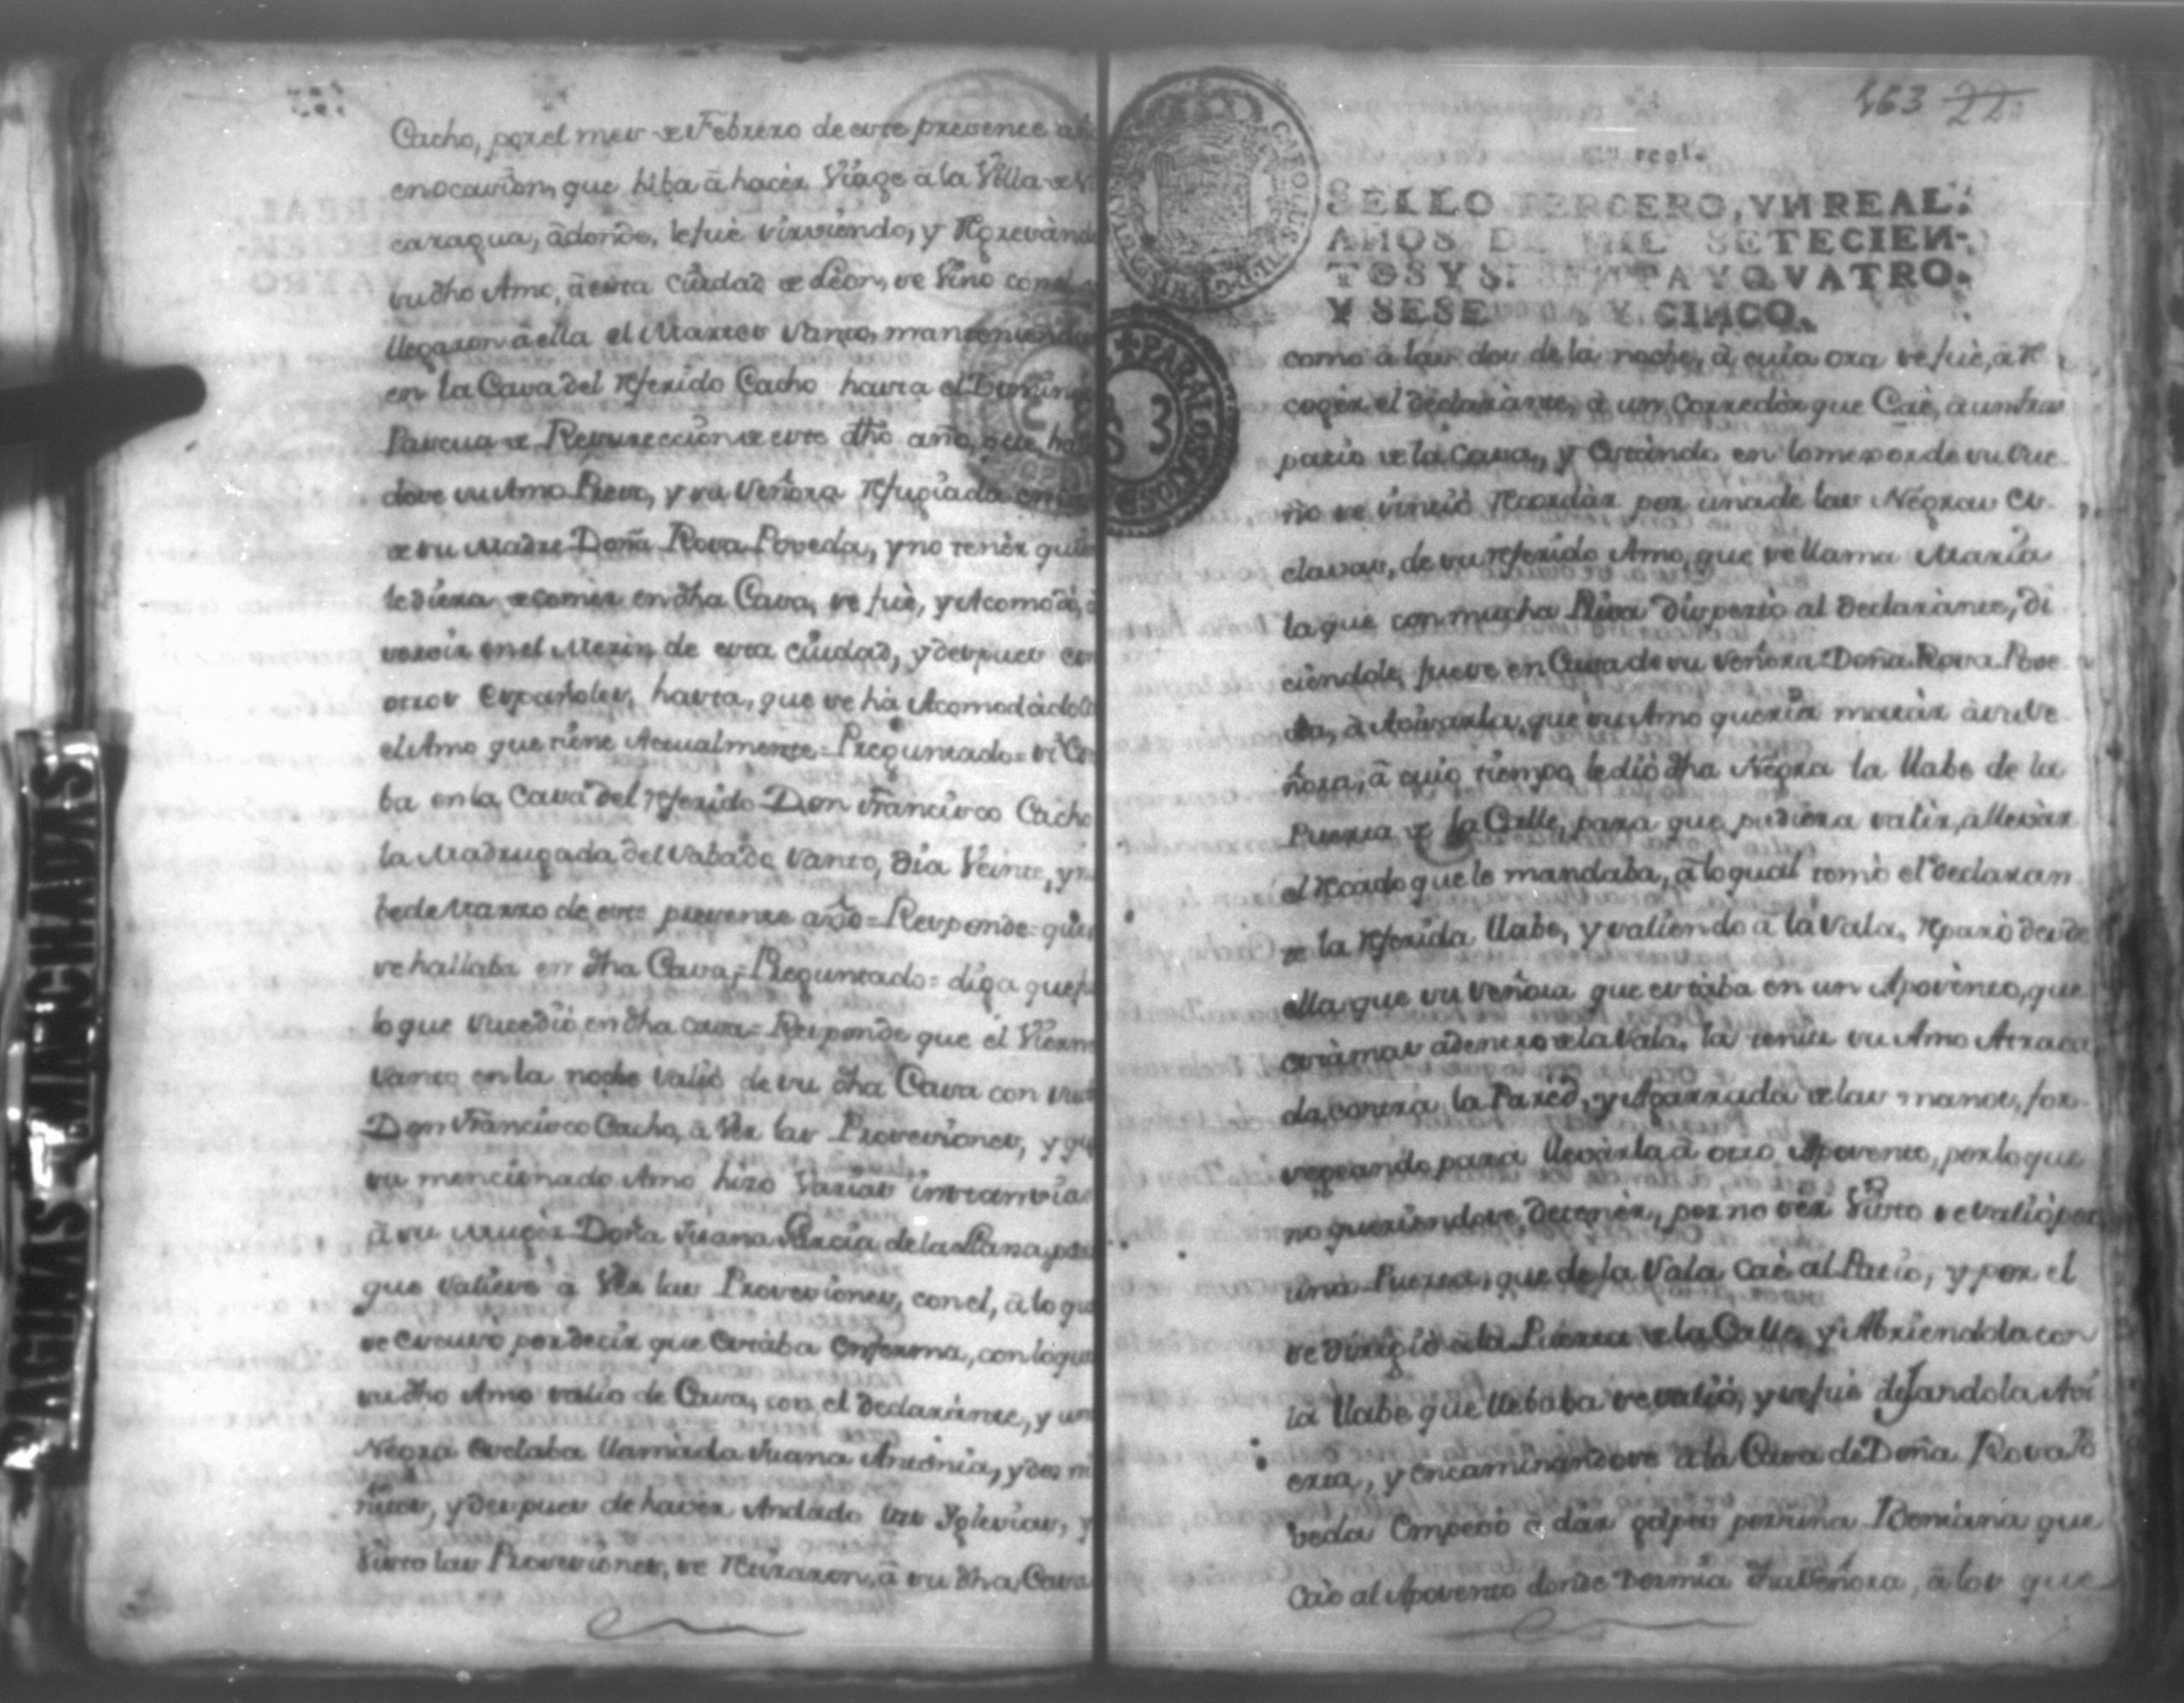 Cacho, por el mes de Febrero de este presente año
en ocasion, que hiba â hacer Viage â la Villa de Ni
caragua, âdonde, le fuè sirviendo, y Regresando
su dho Amo, â esta ciudad de Leon, se Vino con el
llegaron â ella el Martes Santo, manteniendo
en la Casa del Referido Cacho hasta el Domingo
Pascua de Resureccion de este dho año, que
dose su Amo Preso, y su Señora Refugiada en
de su Madre Doña Rosa Poveda, y no tener quien
le diera de comer en dha Casa, se fuè, y Acomodò, â
servir en el Mesòn de esta ciudad, y despues con
otros Españoles, hasta, que se hà Acomodàdo
el Amo que tiene Actualmente = Preguntado = si Es
ba en la Casa del referido Don Francisco Cacho
la Madrugada del Sabado Santo, dia Veinte, y
be de Marzo de este presente año = Responde = que
se hallaba en dha Casa, = Preguntado = diga que
lo que sucediò en dha casa = Responde que el Viern
Santo en la noche saliò de su dha Casa con su
Don Francisco Cacho, â Ver las Prosesiones, y que
su mencionado Amo hizo Varias instancias
â su Muger Doña Juana Garcia de la Llana, para
que saliese â Ver las Prosesiones, con el, â lo que
se Escusò por decir que Estàba Enferma, con lo que
su dho Amo saliò de Casa, con el declarante, y una
Negra Esclaba llamàda Juana Antonia, y dos ni
ños, y despues de haver Andado las Yglesias, y
Visto las Prosesiones, se Retiraron, â su dha Casa
163 22
Un real.
SELLO TERCERO, VN REAL.
AÑOS DE MIL SETECIEN-
TOS Y SESENTA Y QVATRO.
Y SESENTA Y CINCO.
CAROLUS III D G HISPANIAR
PARA LOS AÑOS D
como â las dos de la noche, â cuia ora se fuè, â Re
coger el declarante, â un Corredor que Caè, â un tras
patio de la Casa, y Estàndo en lo mexor de su sue
ño se sintiò Recordàr por una de las Négras Es
clavas, de su referido Amo, que se llama Maria
la que con mucha Prisa dispertò al declarànte, di
ciendole, fuese en Casa de su Señora Doña Rosa Pove
da, â Avisarla, que su Amo queria matàr â su Se
ñora, â cuio tiempo, le diò dha Négra la llabe de la
Puerta de la Calle, para que pudiera salir, â llevàr
el Recado que le mandaba, â lo qual tomò el declaran
te la Referida llabe, y saliendo â la Sala, Reparò desde
ella, que su Señora que estàba en un Aposènto, que
està mas adentro de la Sala, la tenia su Amo Ataca
da contra la Parèd, y Agarrada de las manos, for
segeando para llevàrla â otro Aposento, por lo que
no queriendose, detenèr, por no sèr Visto se saliò por
una Puerta, que de la Sala Caè al Patio, y por el
se dirigiò â la Puerta de la Calle, y Abriendola con
la llabe que llebaba se saliò, y se fuè deJandola Avi
erta, y encaminandose â la Casa de Doña Rosa Po
beda Empesò â dar golpes por una Bentana que
Caè al Aposento donde Dormia dha Señora, â los que
PAGINAS MANCHADAS